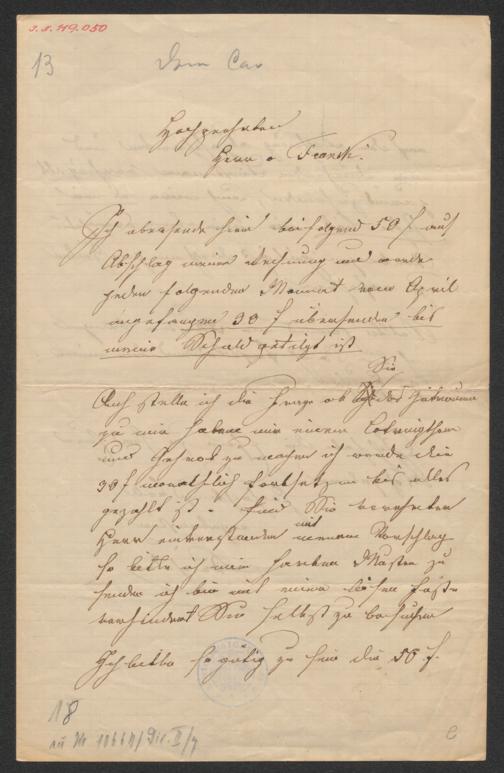 J.N. 119.050
13
Hochgeehrter
Herr v Franck.
Ich übersende hier beifolgend 50 f auf
Abschlag meiner Rechnung und werde
jeden folgenden Monnat vom April
angefangen 30 f übersenden bis
meine Schuld getilgt ist
Sie
Auch stelle ich die Frage ob das Zutrauen
zu mir haben mir einen
und Gehrok zu machen ich werde die
30 f monathlich fortsetzen bis alles
gezahlt ist. Sind Sie verehrter
mit
Herr einverstanden meinem Vorschlag
so bitte ich mir Muster zu
senden ich bin
verhindert Sie selbst zu besuchen
Ich bitte so gütig zu sein die 50 f.
18